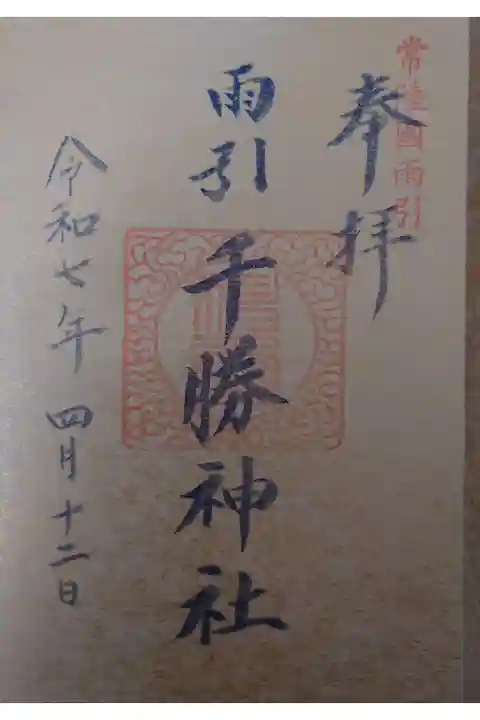 常陸國雨引
奉拝
雨引千勝神社
令和七年 四月十二日